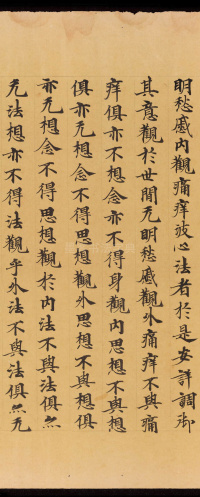 明愁慼内觀痛痒彼心法者於是安詳調御
其意觀於世閒无明愁慼觀外痛痒不與痛
痒俱亦不想念亦不得身觀内思想不與想
俱亦无想念不得思想觀外思想不與想俱
亦无想念不得思想觀於内法不與法俱亦
无法想亦不得法觀乎外法不與法俱亦无